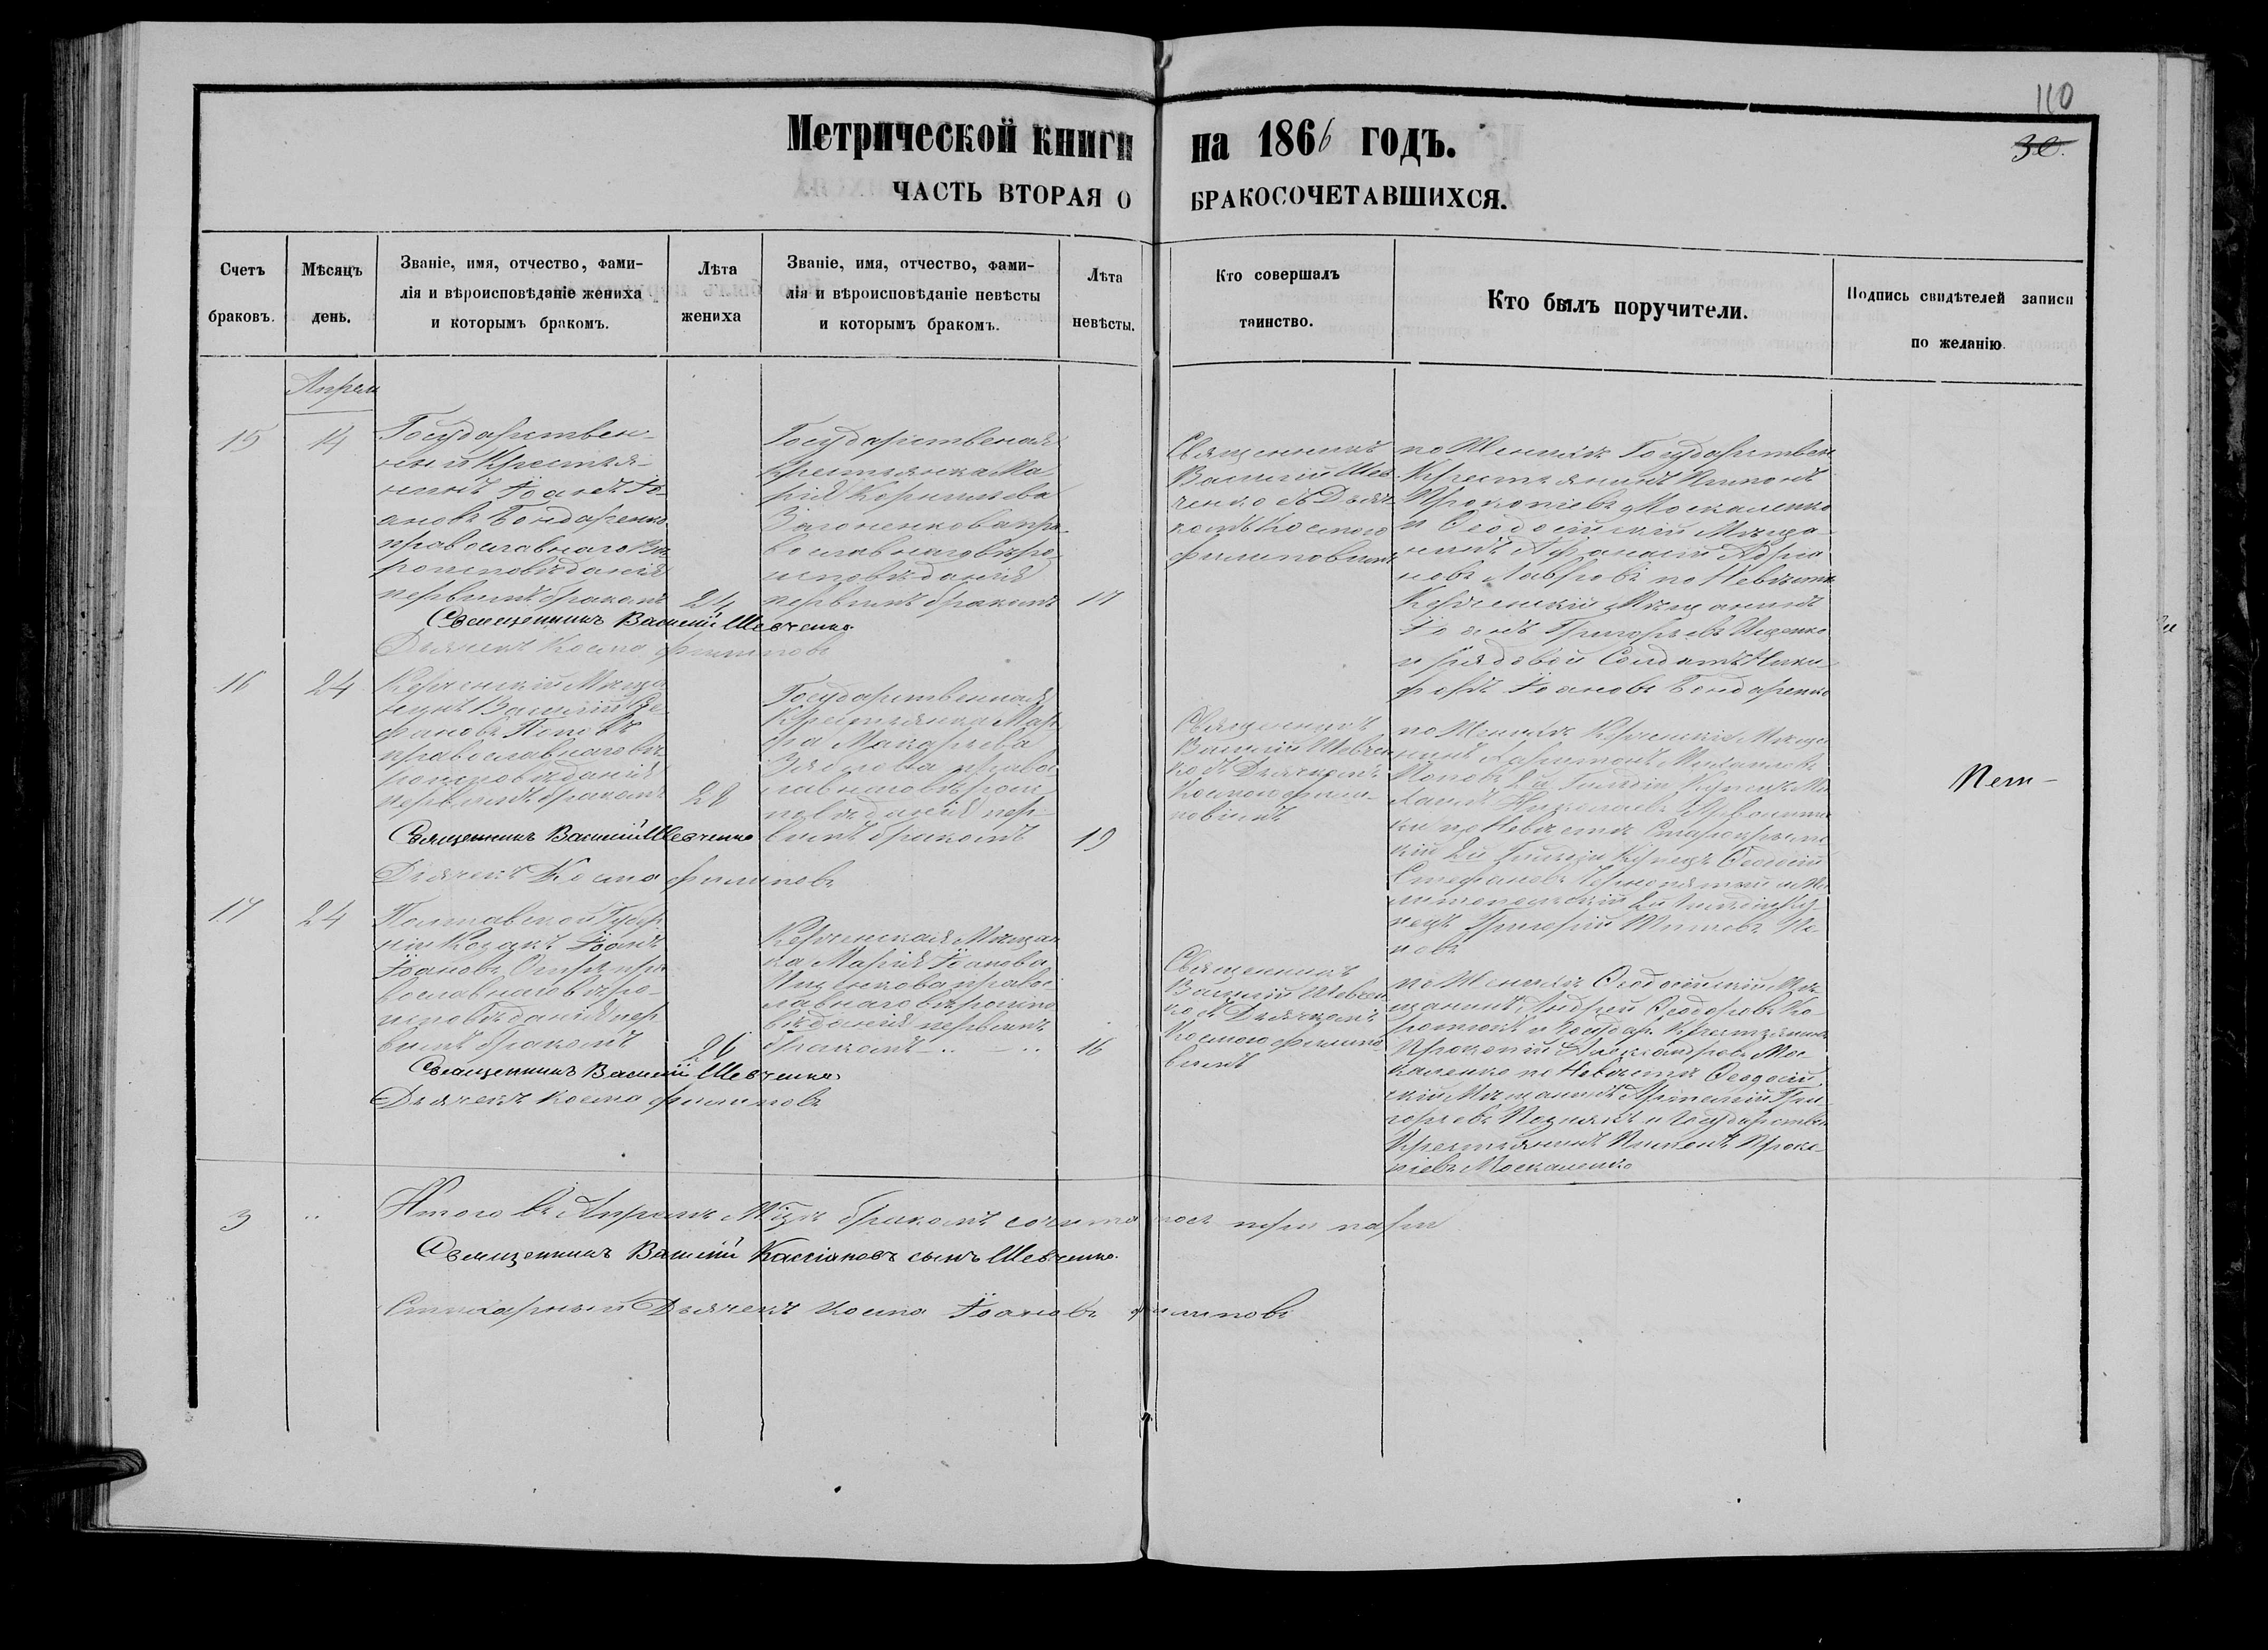 110
30.
Метрической книги на 1866 годъ.
ЧАСТЬ ВТОРАЯ О БРАКОСОЧЕТАВШИХСЯ.
Счетъ браковъ.
Мѣсяцъ день.
Званіе, имя, отчество, фами-
лія и вѣроисповѣданіе жениха
и которымъ бракомъ.
Лѣта
жениха
Званіе, имя, отчество, фами-
лія и вѣроисповѣданіе невѣсты
и которымъ бракомъ.
Лѣта
невѣсты.
Кто совершалъ
таинство.
Кто былъ поручители.
Подпись свидѣтелей записи
по желанію.
Апрель
15
14
Государствен-
ный Крестья-
нинъ Іоаннъ Іо-
ановъ Бондаренко
православнаго вѣ-
роисповѣданія
первымъ бракомъ
24
Государственая
Крестьянка Ма
рія Корнильева
православнаго вѣро
исповѣданія
первымъ бракомъ
17
Священникъ
Василій Шев
ченко съ Дьяч
комъ Космою
Филиповымъ
по Женихѣ Государствен
Крестьянинъ Пименъ
Прокопіевъ Москаленко
и Ѳеодосійскій Мѣща
нинъ Афанасій Адріа
новъ Лавровъ по Невѣстѣ
Керченскій Мѣщанинъ
Іоанъ Григорьевъ Ищенко
и рядовой Солдатъ Ники
форъ Іоановъ Бондаренко
Священникъ Василій Шевченко
Дьячекъ Косма Филиповъ
16
24
Керченскій Мѣща
нинъ Василій Сте
фановъ Поповъ
православнаго вѣ
роисповѣданія
первымъ бракомъ
22
Государственная
Крестьянка Мар
фа Макарьева
правос
лавнаго вѣроис
повѣданія пер-
вымъ бракомъ
19
Священникъ
Василій Шевчен
ко съ Дьячкомъ
Космою Фили-
повымъ
по Женихѣ Керченскій Мѣща
нинъ Харитонъ Михаиловъ
Поповъ 2й Гильдіи Купецъ
Николаевъ
по Невѣстѣ Старокрым
скій 2й Гильдіи Купецъ Ѳеодосій
Стефановъ и Ме
литопольскій 2й Гильдіи Ку
пецъ Григорій По
повъ
Нет-
Священникъ Василій Шевченко
Дьячекъ Косма Филиповъ
17
24
Полтавской Губер
ніи Козакъ Іоанъ
Іоановъ пра
вославнаго вѣро-
исповѣданія пер
вымъ бракомъ
26
Керченская Мѣщан
ка Марія Іоанова
Ищенкова правос
лавнаго вѣроиспо
вѣданія первымъ
бракомъ
16
Священникъ
Василій Шевчен
ко съ Дьячкомъ
Космою Филипо
вымъ
по Женихѣ Ѳеодосійскій Мѣ
щанинъ Андрей Ѳеодоровъ Ко
и Государ. Крестьянинъ
Прокопій Александровъ Мос
каленко по Невѣстѣ Ѳеодосій
скій Мѣщанинъ Гри
горьевъ Познякъ и Государствен
Крестьянинъ Пименъ Проко
піевъ Москаленко
Священникъ Василій Шевченко
Дьячекъ Косма Филиповъ
3
Итого въ Апрелѣ Мѣцѣ бракомъ сочеталось три пары
Священникъ Василій Кассіановъ сынъ Шевченко.
Стихарный Дьячекъ Косма Іоановъ Филиповъ